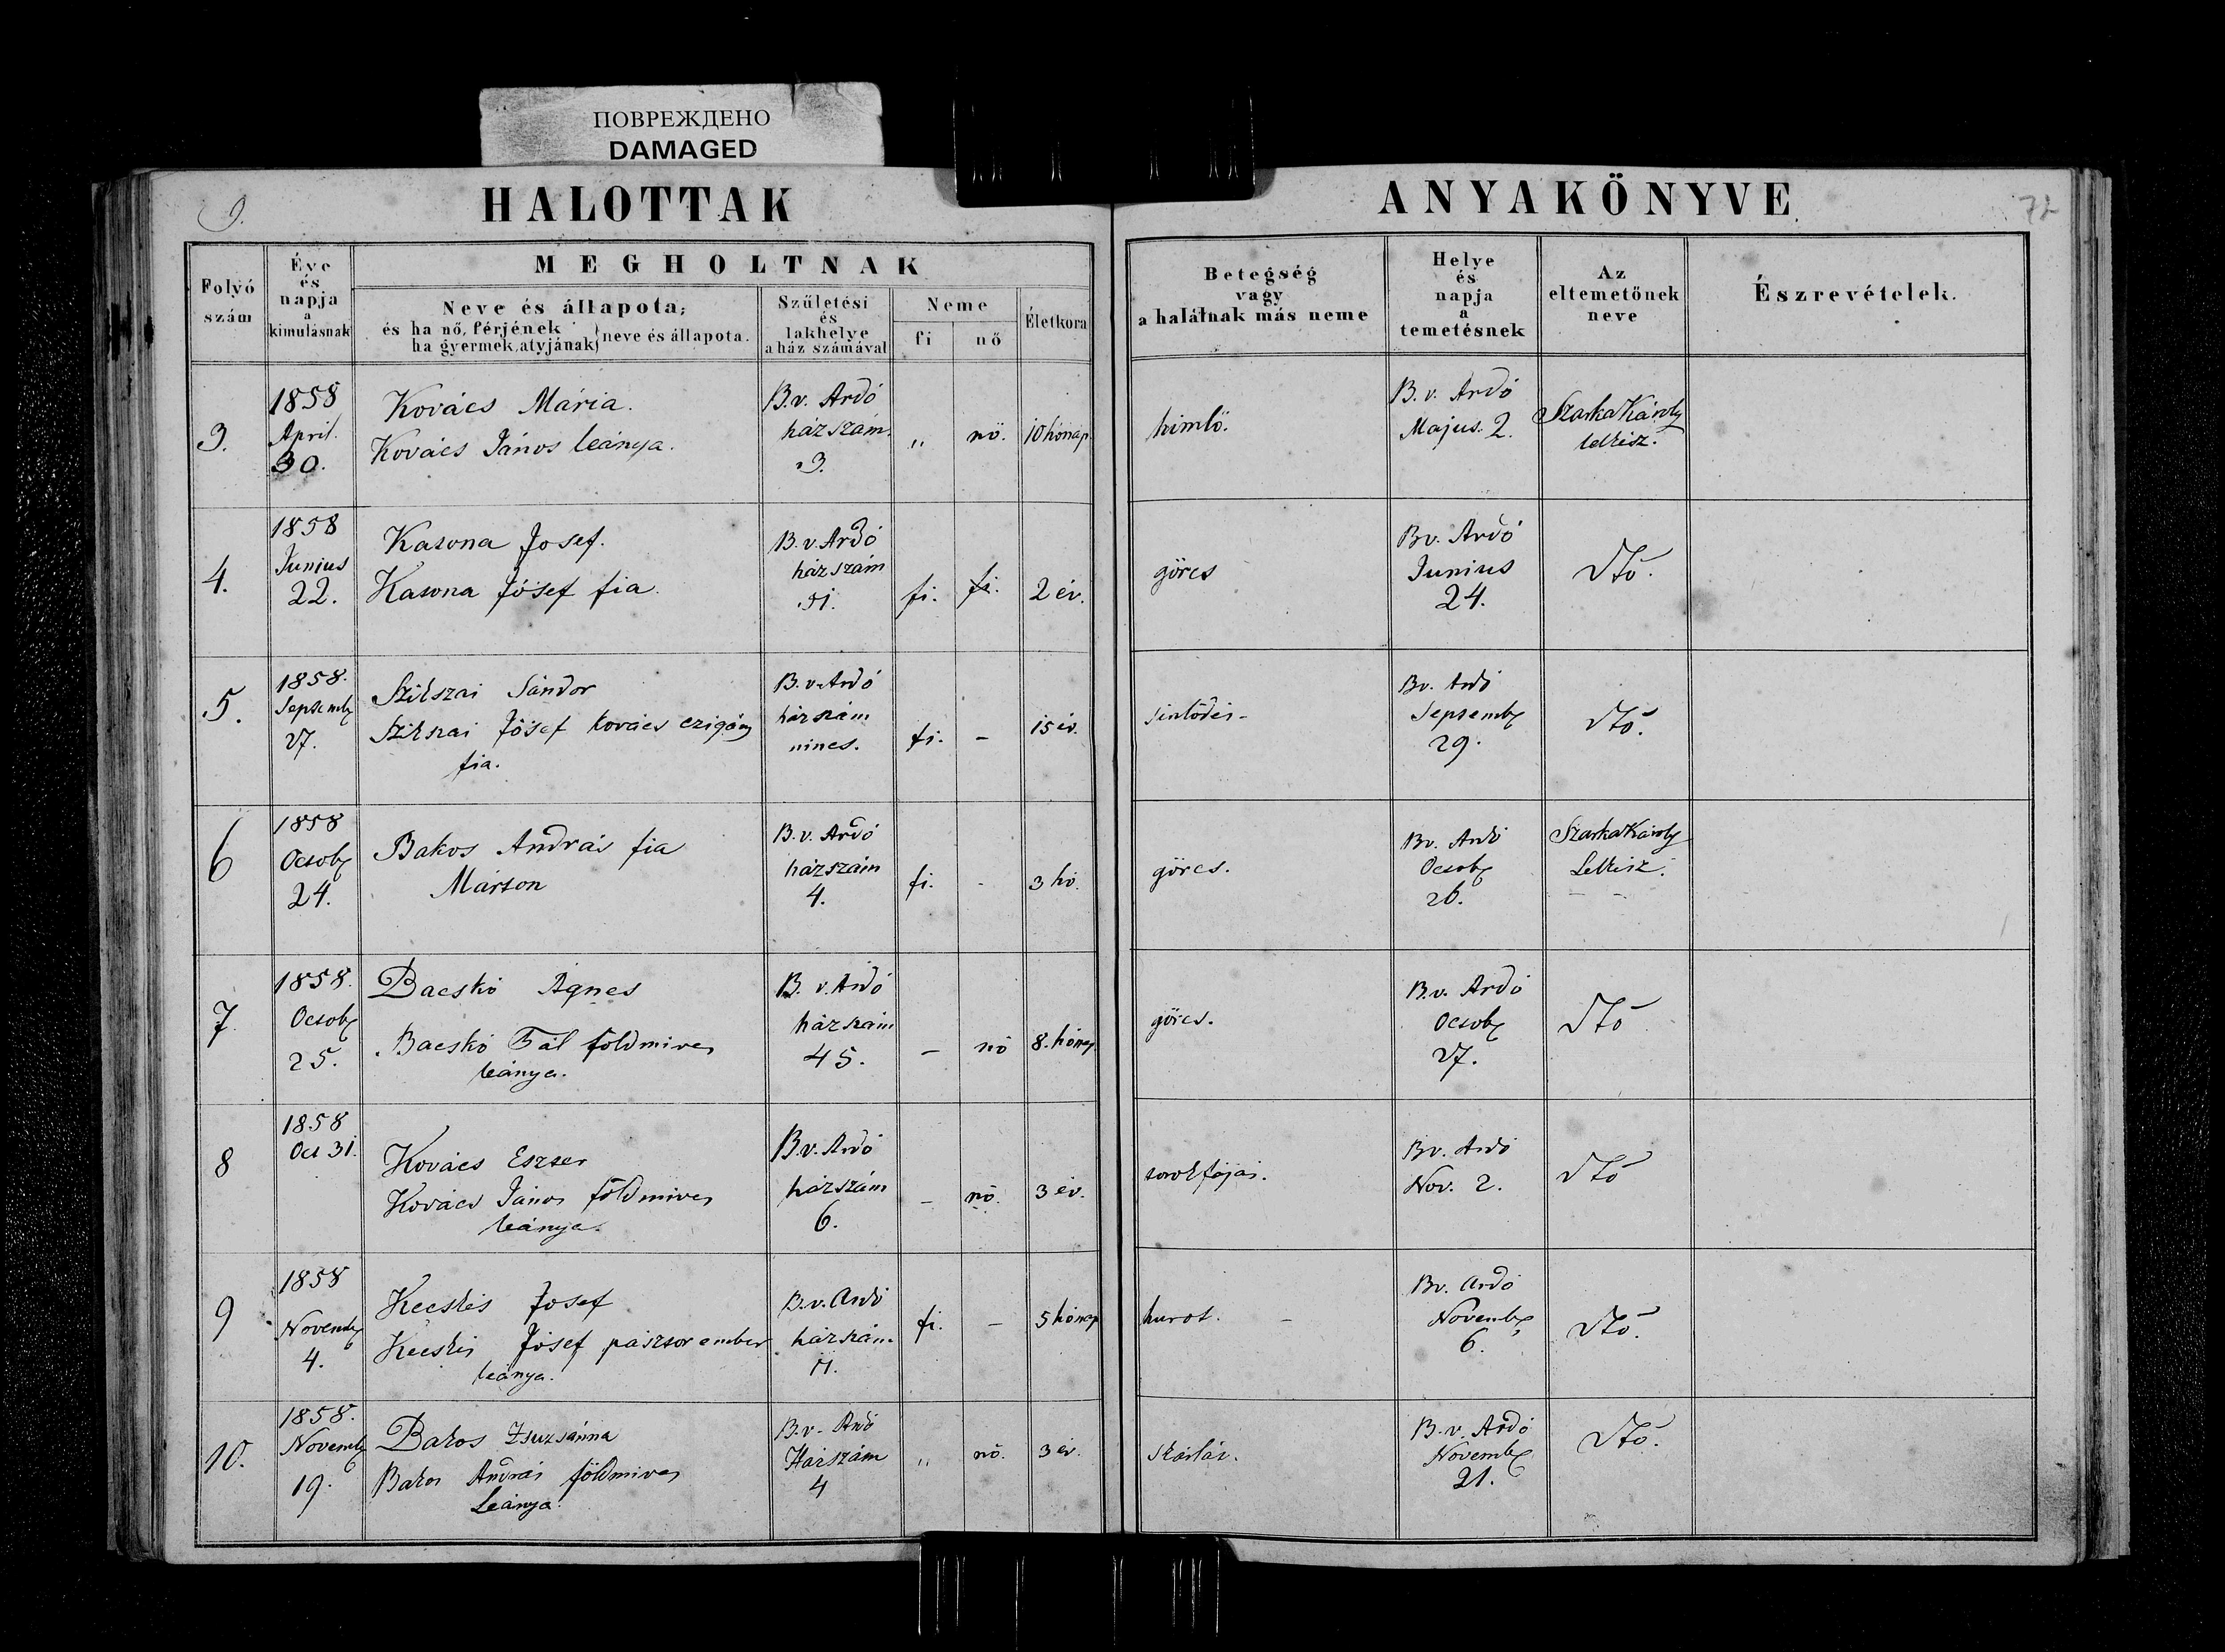 ПОВРЕЖДЕНО
DAMAGED
9.
HALOTTAK
ANYAKÖNYVE
72
Folyó
szám
Éve
és
napja
a
kimulásnak
MEGHOLTNAK
Neve és állapota;
és ha nő, férjének
ha gyermek, atyjának} neve és állapota.
Születési
és
lakhelye
a ház számával
Neme
fi
nő
Életkora
Betegség
vagy
a halálnak más neme
Helye
és
napja
a
temetésnek
Az
eltemetőnek
neve
Észrevételek.
3.
1858
April.
30.
Kovács Mária.
Kovács János leánya.
B.v. Ardó
házszám.
3.
„
nő.
10 hónap
himlő.
B. v. Ardó
Majus. 2.
Szarka Károly
lelkész.
4.
1858
Junius
22.
Katona Josef.
Katona Jósef fia.
B. v. Ardó
házszám
51.
fi.
fi.
2 év.
görcs
Bv. Ardó
Junius
24.
dtó.
5.
1858.
Septemb
27.
Szikszai Sándor
Szikszai Jósef kovács czigány
fia.
B. v. Ardó
házszám
nincs.
fi.
-
15 év.
Bv. Ardó
Septemb
29.
dtó.
6
1858
Octob
24.
Bakos András fia
Márton
B. v. Ardó
házszám
4.
fi.
-
3 hó.
görcs.
Bv. Ardó
Octob
26.
Szarka Károly
Lelkész.
7.
1858.
Octob
25.
Bacskó Ágnes
Bacskó Pál földmives
leánya.
B. v. Ardó
házszám
45.
-
nő
8. hónap.
görcs.
B.v. Ardó
Octob
27.
dtó
8
1858
Oct 31.
Kovács Eszter
Kovács János földmives
leánya.
B. v. Ardó
házszám
6.
-
nő.
3 év.
torokfájás.
Bv. Ardó
Nov. 2.
dtó
9
1858
Novemb
4.
Kecskés Josef
Kecskés Jósef pásztor ember
leánya.
B. v. Ardó
házszám
fi.
-
5 hónap
hurot. -
Bv. Ardó
Novemb
6.
dtó.
10.
1858.
Novemb
19.
Bakos Zsuzsánna
Bakos András földmives
Leánya.
B. v. Ardó
Házszám
4
„
nő.
3 év.
skárlát.
B. v. Ardó
Novemb
21.
dtó.